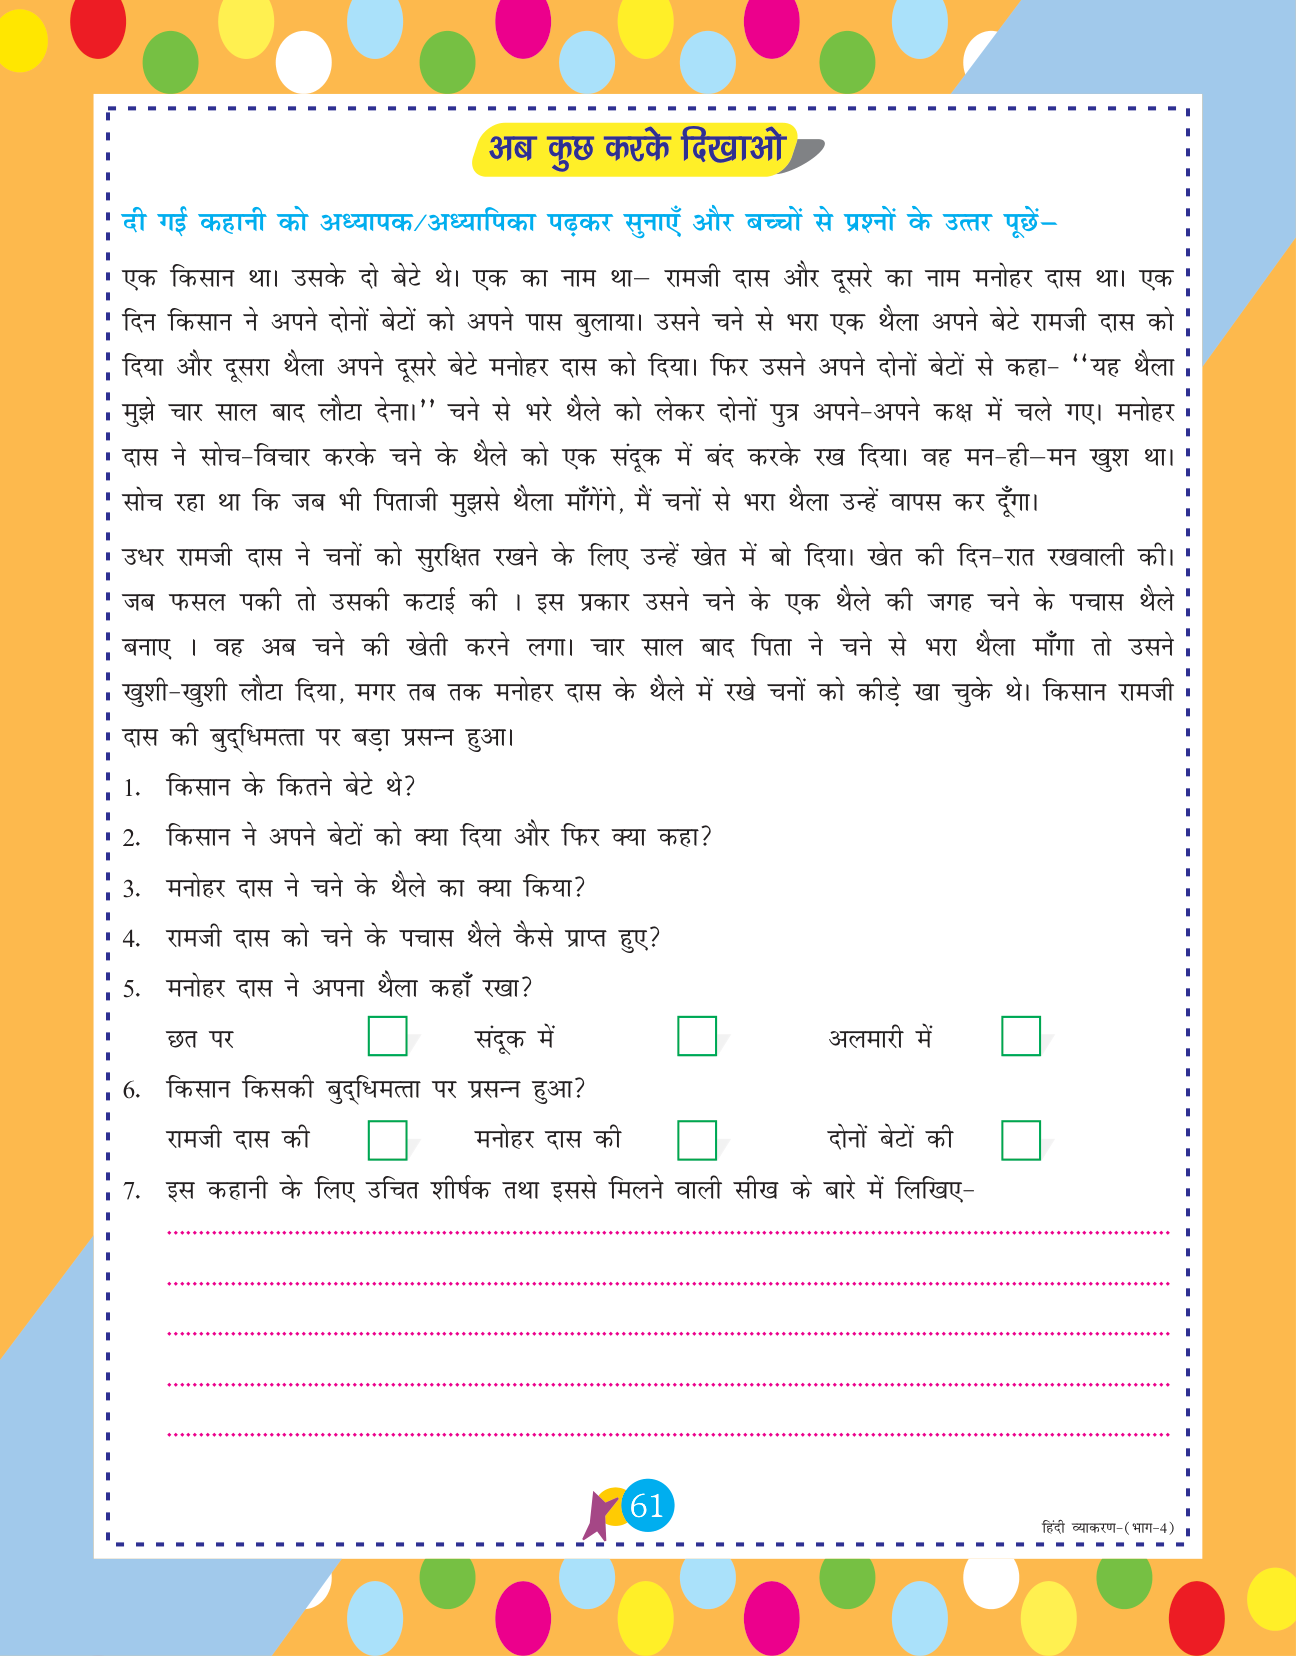 अब कुछ करके दिखाओ
दी गई कहानी को अध्यापक/अध्यापिका पढ़कर सुनाएँ और बच्चों से प्रश्नों के उत्तर पूछें–
एक किसान था। उसके दो बेटे थे। एक का नाम था— रामजी दास और दूसरे का नाम मनोहर दास था। एक
दिन किसान ने अपने दोनों बेटों को अपने पास बुलाया। उसने चने से भरा एक थैला अपने बेटे रामजी दास को
दिया और दूसरा थैला अपने दूसरे बेटे मनोहर दास को दिया। फिर उसने अपने दोनों बेटों से कहा– ‘‘यह थैला
मुझे चार साल बाद लौटा देना।’’ चने से भरे थैले को लेकर दोनों पुत्र अपने–अपने कक्ष में चले गए। मनोहर
दास ने सोच–विचार करके चने के थैले को एक संदूक में बंद करके रख दिया। वह मन–ही—मन खुश था।
सोच रहा था कि जब भी पिताजी मुझसे थैला माँगेंगे, मैं चनों से भरा थैला उन्हें वापस कर दूँगा।
उधर रामजी दास ने चनों को सुरक्षित रखने के लिए उन्हें खेत में बो दिया। खेत की दिन–रात रखवाली की।
जब फसल पकी तो उसकी कटाई की । इस प्रकार उसने चने के एक थैले की जगह चने के पचास थैले
बनाए । वह अब चने की खेती करने लगा। चार साल बाद पिता ने चने से भरा थैला माँगा तो उसने
खुशी–खुशी लौटा दिया, मगर तब तक मनोहर दास के थैले में रखे चनों को कीड़े खा चुके थे। किसान रामजी
दास की बुद्‌धिमत्ता पर बड़ा प्रसन्न हुआ।
1. किसान के कितने बेटे थे?
2. किसान ने अपने बेटों को क्या दिया और फिर क्या कहा?
3. मनोहर दास ने चने के थैले का क्या किया?
4. रामजी दास को चने के पचास थैले कैसे प्राप्त हुए?
5. मनोहर दास ने अपना थैला कहाँ रखा?
छत पर संदूक में अलमारी में
6. किसान किसकी बुद्‌धिमत्ता पर प्रसन्न हुआ?
रामजी दास की मनोहर दास की दोनों बेटों की
7. इस कहानी के लिए उचित शीर्षक तथा इससे मिलने वाली सीख के बारे में लिखिए–
61
हिंदी व्याकरण–(भाग–4)